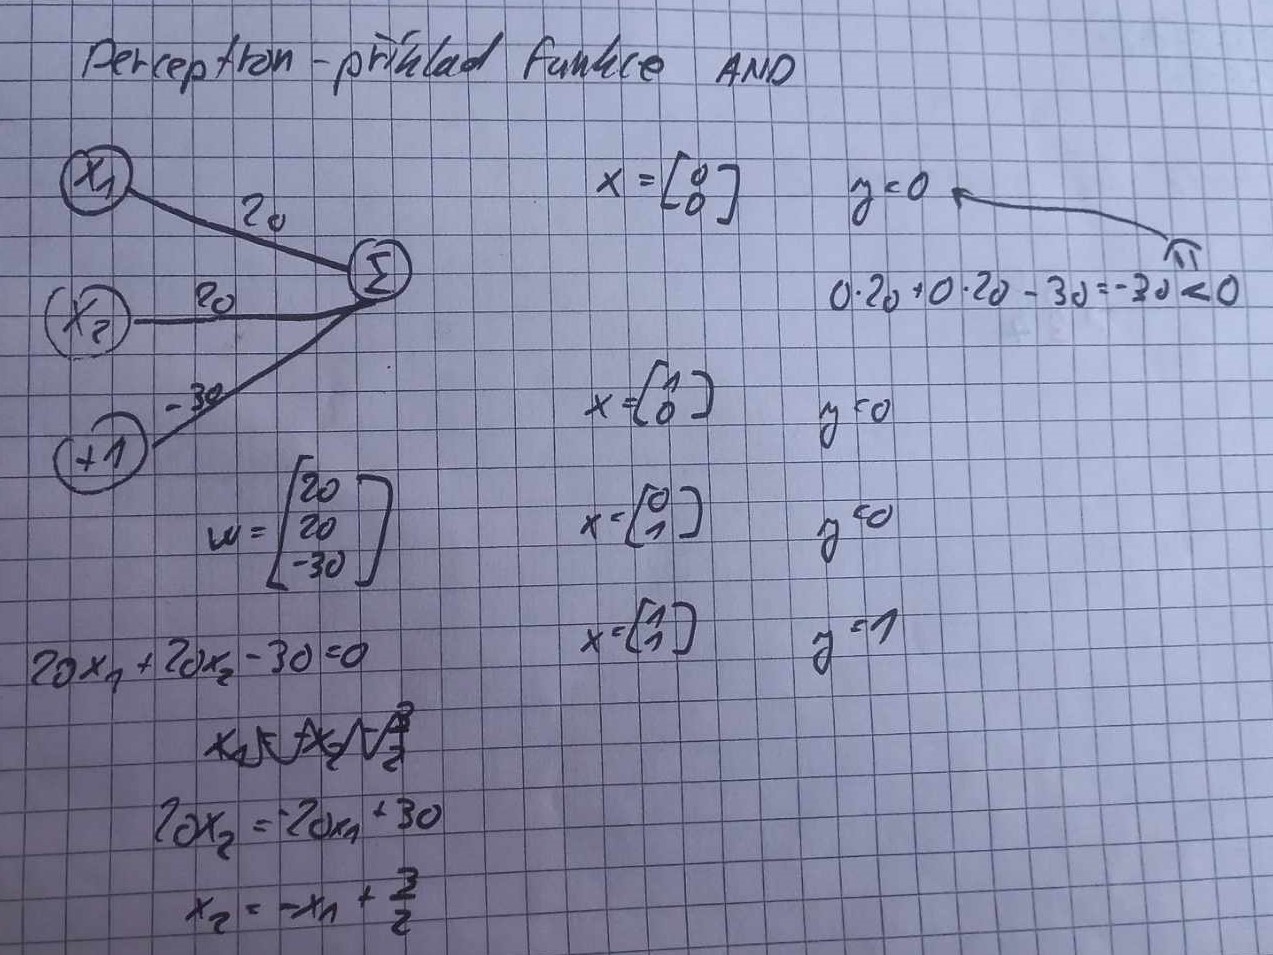 Perceptron - příklad funkce AND
x₁
20
Σ
x₂
20
-30
+1
w = [20 20 -30]
20x₁ + 20x₂ - 30 = 0
20x₂ = -20x₁ + 30
x₂ = -x₁ + 3/2
x = [0 0] y = 0
0·20 + 0·20 - 30 = -30 < 0
x = [1 0] y = 0
x = [0 1] y = 0
x = [1 1] y = 1